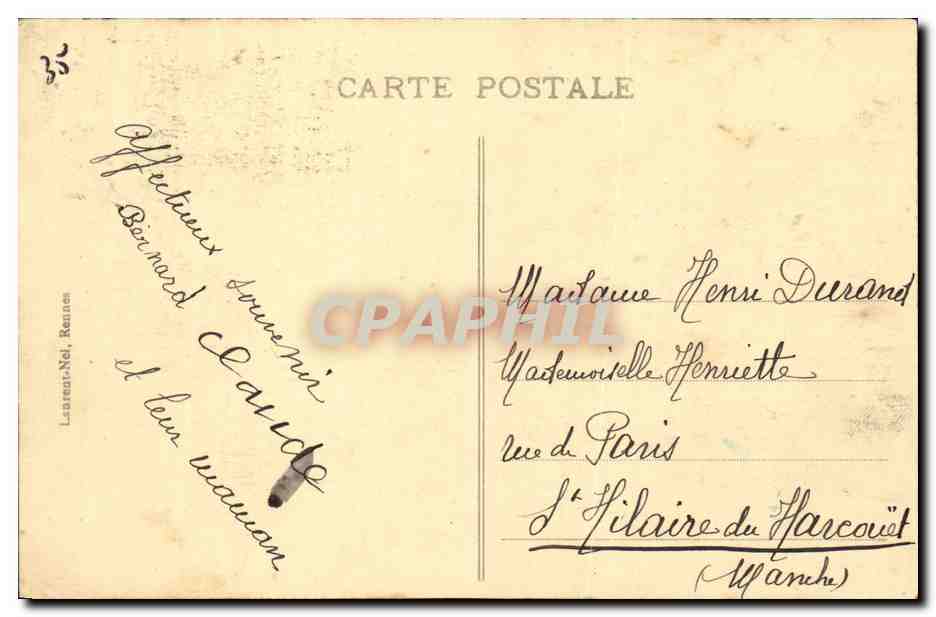 CARTE POSTALE
Affectueux souvenir
Bernard Claude
et leur maman
Laurent-Nel, Rennes
Madame Henri Durand
Mademoiselle Henriette
rue de Paris
St Hilaire du Harcouët
(Manche)
CPAPHIL